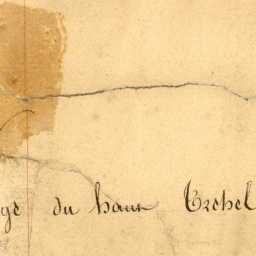 ge du haut Trehel